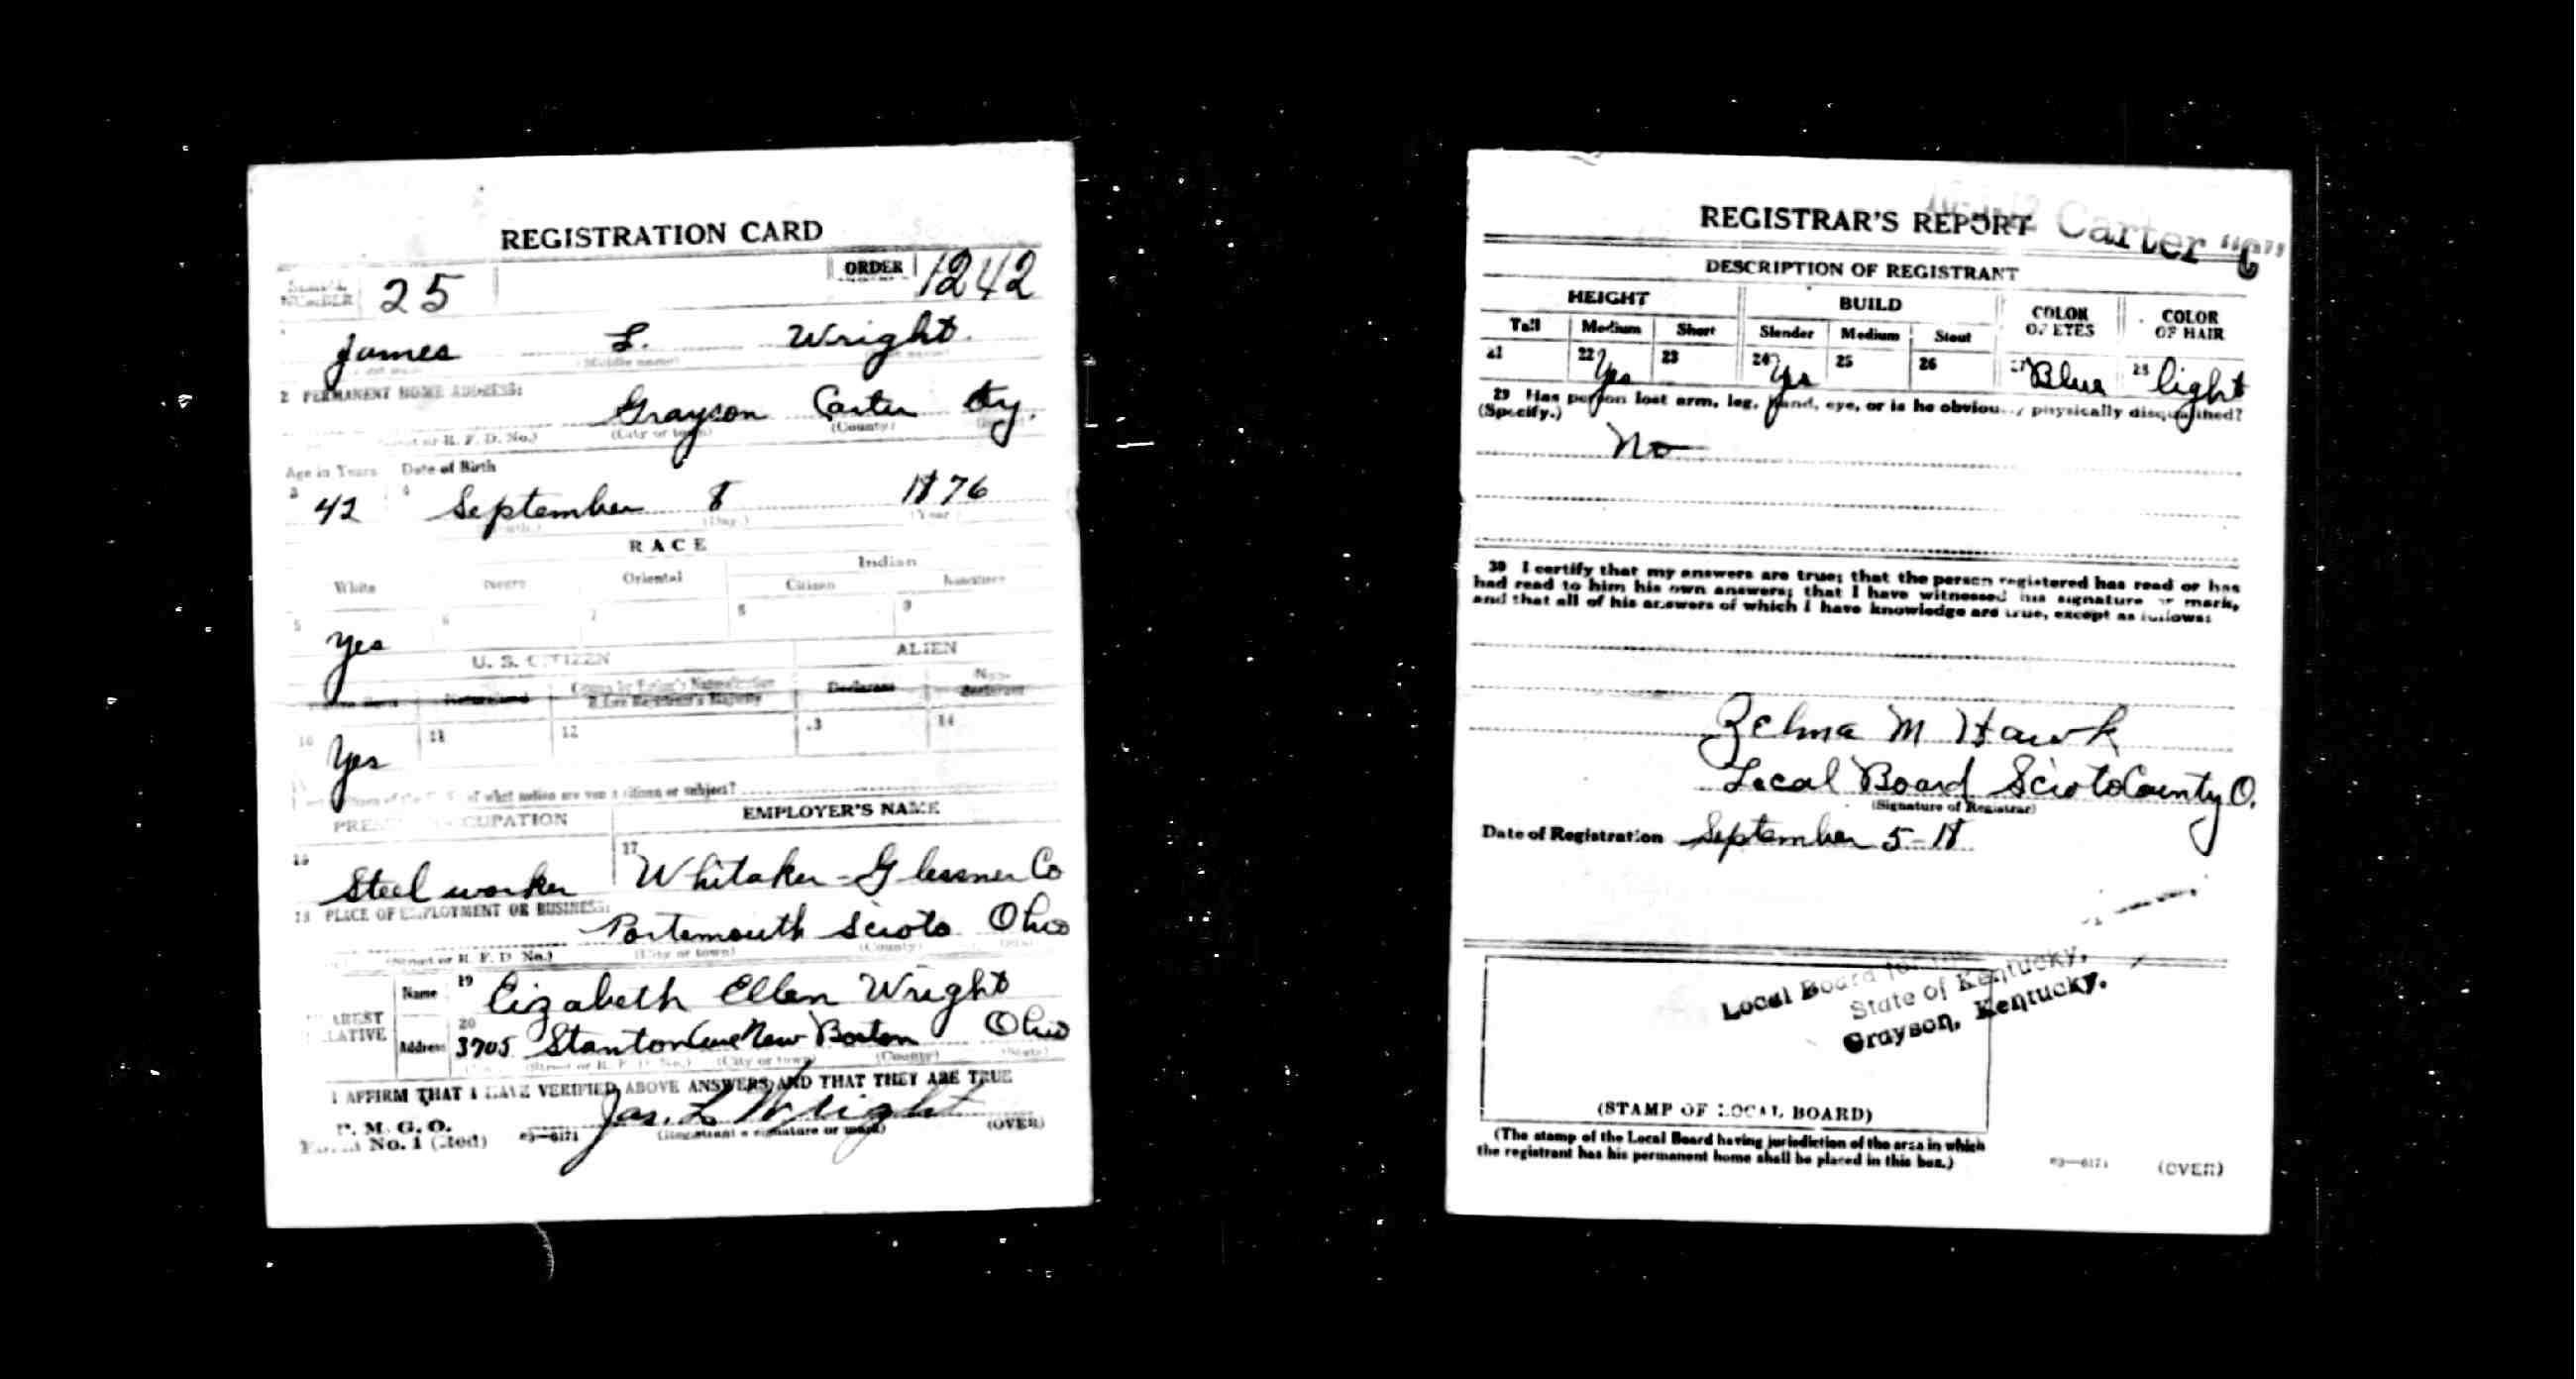 REGISTRATION CARD
SERIAL NUMBER 25 ORDER 1242
1 James L. Wright.
(Middle name)
2 PERMANENT HOME ADDRESS:
Grayson Carter Ky.
(Street or R. F. D. No.) (City or town) (County)
Age in Years Date of Birth
3 42 4 September 8 1876
(Day.) (Year)
RACE
White Negro Oriental Indian
Citizen Noncitizen
5 Yes 6 7 8 9
U. S. CITIZEN ALIEN
Native Born Naturalized Citizen by Father's Naturalization Before Registrant's Majority Declarant Non-declarant
10 Yes 11 12 13 14
15 of what nation are you a citizen or subject?
PRESENT OCCUPATION EMPLOYER'S NAME
16 Steel worker 17 Whitaker-Glessner Co
18 PLACE OF EMPLOYMENT OR BUSINESS:
Portsmouth Scioto Ohio
(Street or R. F. D. No.) (City or town) (County) (State)
NEAREST RELATIVE Name 19 Eizabeth Ellen Wright
Address 20 3705 Stanton Ave New Boston Ohio
(Street or R. F. D. No.) (City or town) (County) (State)
I AFFIRM THAT I HAVE VERIFIED ABOVE ANSWERS AND THAT THEY ARE TRUE
P. M. G. O.
Form No. 1 (Red) 03—6171 Jas. L Wright (OVER)
(Registrant's signature or mark)
REGISTRAR'S REPORT
Carter "C"
DESCRIPTION OF REGISTRANT
HEIGHT BUILD COLOR OF EYES COLOR OF HAIR
Tall Medium Short Slender Medium Stout
21 22 Yes 23 24 Yes 25 26 27 Blue 28 light
29 Has person lost arm, leg, hand, eye, or is he obviously physically disqualified?
(Specify.)
No
30 I certify that my answers are true; that the person registered has read or has
had read to him his own answers; that I have witnessed his signature or mark,
and that all of his answers of which I have knowledge are true, except as follows:
Zelma M Hawk
Local Board Scioto County O.
(Signature of Registrar)
Date of Registration September 5-18
Local Board for
State of Kentucky,
Grayson, Kentucky.
(STAMP OF LOCAL BOARD)
(The stamp of the Local Board having jurisdiction of the area in which
the registrant has his permanent home shall be placed in this box.)
03—6171 (OVER)